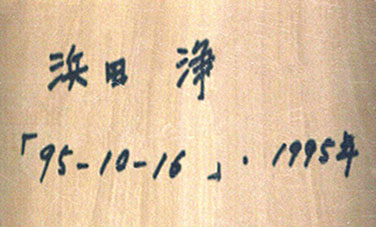 浜田 浄
「95-10-16」. 1995年